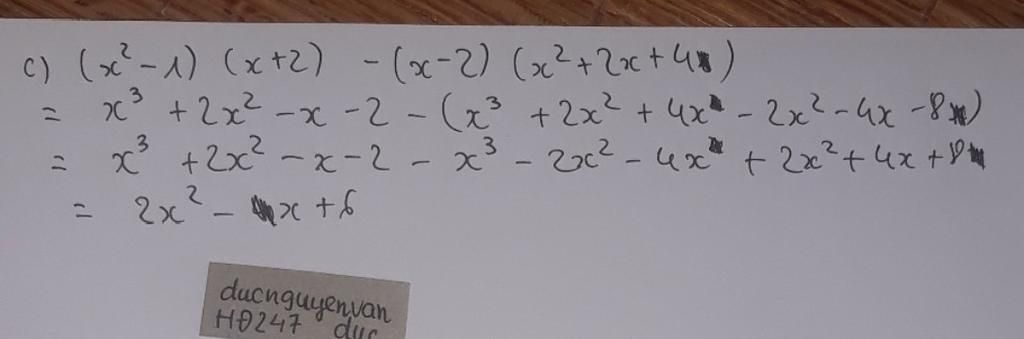 c) (x² - 1) (x + 2) - (x - 2) (x² + 2x + 4)
= x³ + 2x² - x - 2 - (x³ + 2x² + 4x - 2x² - 4x - 8)
= x³ + 2x² - x - 2 - x³ - 2x² - 4x + 2x² + 4x + 8
= 2x² - x + 6
ducnguyenvan
HĐ247 duc